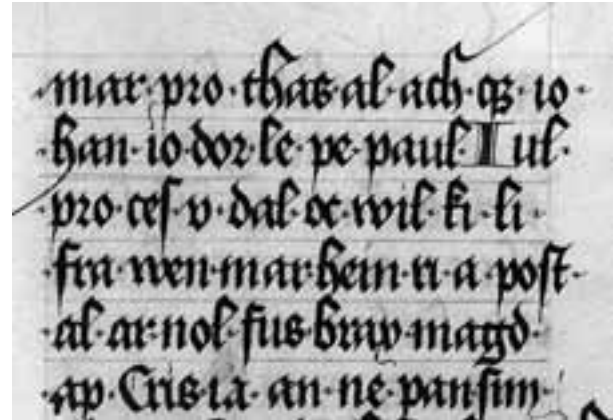 ·mar·pro·thas·al·ach·qz·io·
·han·io·dor·le·pe·paul·Iul·
pro·ces·v·dal·oc·wil·ki·li·
·fra·wen·mar·hein·ri·a·post·
·al·ar·nol·fus·braw·magd·
·ap·Cris·ia·an·ne·pan·sim·